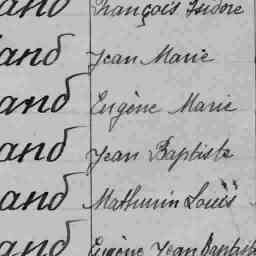 and François Isidore
and Jean Marie
and Eugène Marie
and Jean Baptiste
and Mathurin Louis
and Eugène Jean Baptiste